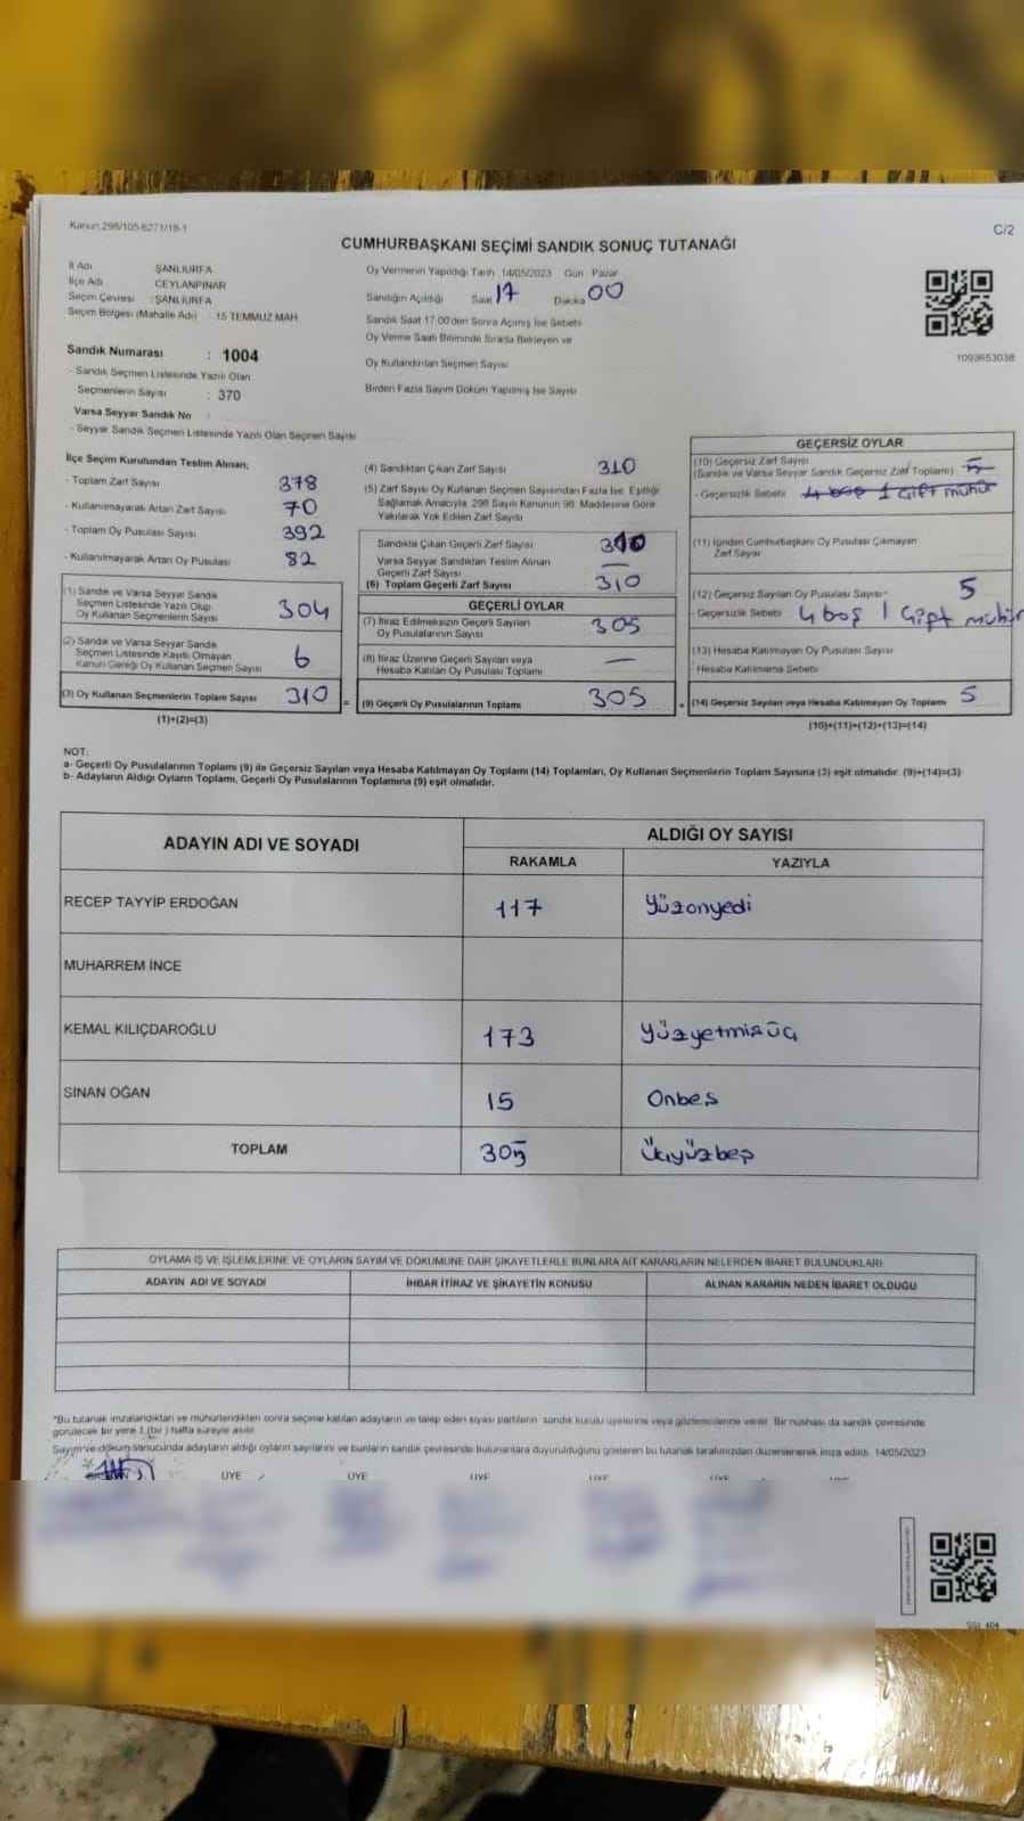 Kanun:298/105-6271/18-1
C/2
CUMHURBAŞKANI SEÇİMİ SANDIK SONUÇ TUTANAĞI
İl Adı : ŞANLIURFA
İlçe Adı : CEYLANPINAR
Seçim Çevresi : ŞANLIURFA
Seçim Bölgesi (Mahalle Adı) : 15 TEMMUZ MAH
Sandık Numarası : 1004
- Sandık Seçmen Listesinde Yazılı Olan
Seçmenlerin Sayısı : 370
Varsa Seyyar Sandık No
- Seyyar Sandık Seçmen Listesinde Yazılı Olan Seçmen Sayısı
Oy Vermenin Yapıldığı Tarih 14/05/2023 Gün Pazar
Sandığın Açıldığı Saat 17 Dakika 00
Sandık Saat 17.00'den Sonra Açılmış İse Sebebi
Oy Verme Saati Bitiminde Sırada Bekleyen ve
Oy Kullandırılan Seçmen Sayısı
Birden Fazla Sayım Döküm Yapılmış İse Sayısı
1093653038
İlçe Seçim Kurulundan Teslim Alınan;
- Toplam Zarf Sayısı 378
- Kullanılmayarak Artan Zarf Sayısı 70
- Toplam Oy Pusulası Sayısı 392
- Kullanılmayarak Artan Oy Pusulası 82
(1) Sandık ve Varsa Seyyar Sandık
Seçmen Listesinde Yazılı Olup
Oy Kullanan Seçmenlerin Sayısı 304
(2) Sandık ve Varsa Seyyar Sandık
Seçmen Listesinde Kayıtlı Olmayan
Kanun Gereği Oy Kullanan Seçmen Sayısı 6
(3) Oy Kullanan Seçmenlerin Toplam Sayısı 310
(1)+(2)=(3)
=
(4) Sandıktan Çıkan Zarf Sayısı 310
(5) Zarf Sayısı Oy Kullanan Seçmen Sayısından Fazla İse, Eşitliği
Sağlamak Amacıyla, 298 Sayılı Kanunun 98. Maddesine Göre
Yakılarak Yok Edilen Zarf Sayısı
Sandıkta Çıkan Geçerli Zarf Sayısı 310
Varsa Seyyar Sandıktan Teslim Alınan
Geçerli Zarf Sayısı —
(6) Toplam Geçerli Zarf Sayısı 310
GEÇERLİ OYLAR
(7) İtiraz Edilmeksizin Geçerli Sayılan
Oy Pusulalarının Sayısı 305
(8) İtiraz Üzerine Geçerli Sayılan veya
Hesaba Katılan Oy Pusulası Toplamı —
(9) Geçerli Oy Pusulalarının Toplamı 305
+
GEÇERSİZ OYLAR
(10) Geçersiz Zarf Sayısı
(Sandık ve Varsa Seyyar Sandık Geçersiz Zarf Toplamı) 5
- Geçersizlik Sebebi 4 boş 1 Çift mühür
(11) İçinden Cumhurbaşkanı Oy Pusulası Çıkmayan
Zarf Sayısı
(12) Geçersiz Sayılan Oy Pusulası Sayısı 5
- Geçersizlik Sebebi 4 boş 1 Çift mühür
(13) Hesaba Katılmayan Oy Pusulası Sayısı
Hesaba Katılmama Sebebi
(14) Geçersiz Sayılan veya Hesaba Katılmayan Oy Toplamı 5
(10)+(11)+(12)+(13)=(14)
NOT:
a- Geçerli Oy Pusulalarının Toplamı (9) ile Geçersiz Sayılan veya Hesaba Katılmayan Oy Toplamı (14) Toplamları, Oy Kullanan Seçmenlerin Toplam Sayısına (3) eşit olmalıdır. (9)+(14)=(3)
b- Adayların Aldığı Oyların Toplamı, Geçerli Oy Pusulalarının Toplamına (9) eşit olmalıdır.
ADAYIN ADI VE SOYADI
ALDIĞI OY SAYISI
RAKAMLA YAZIYLA
RECEP TAYYİP ERDOĞAN 117 Yüzonyedi
MUHARREM İNCE
KEMAL KILIÇDAROĞLU 173 Yüzyetmişüç
SİNAN OĞAN 15 Onbeş
TOPLAM 305 Üçyüzbeş
OYLAMA İŞ VE İŞLEMLERİNE VE OYLARIN SAYIM VE DÖKÜMÜNE DAİR ŞİKAYETLERLE BUNLARA AİT KARARLARIN NELERDEN İBARET BULUNDUKLARI
ADAYIN ADI VE SOYADI İHBAR İTİRAZ VE ŞİKAYETİN KONUSU ALINAN KARARIN NEDEN İBARET OLDUĞU
*Bu tutanak imzalandıktan ve mühürlendikten sonra seçime katılan adayların ve talep eden siyasi partilerin sandık kurulu üyelerine veya gözlemcilerine verilir. Bir nüshası da sandık çevresinde
görülecek bir yere 1 (bir) hafta süreyle asılır.
Sayım ve döküm sonucunda adayların aldığı oyların sayılarını ve bunların sandık çevresinde bulunanlara duyurulduğunu gösteren bu tutanak tarafımızdan düzenlenerek imza edildi. 14/05/2023
ÜYE ÜYE ÜYE ÜYE ÜYE